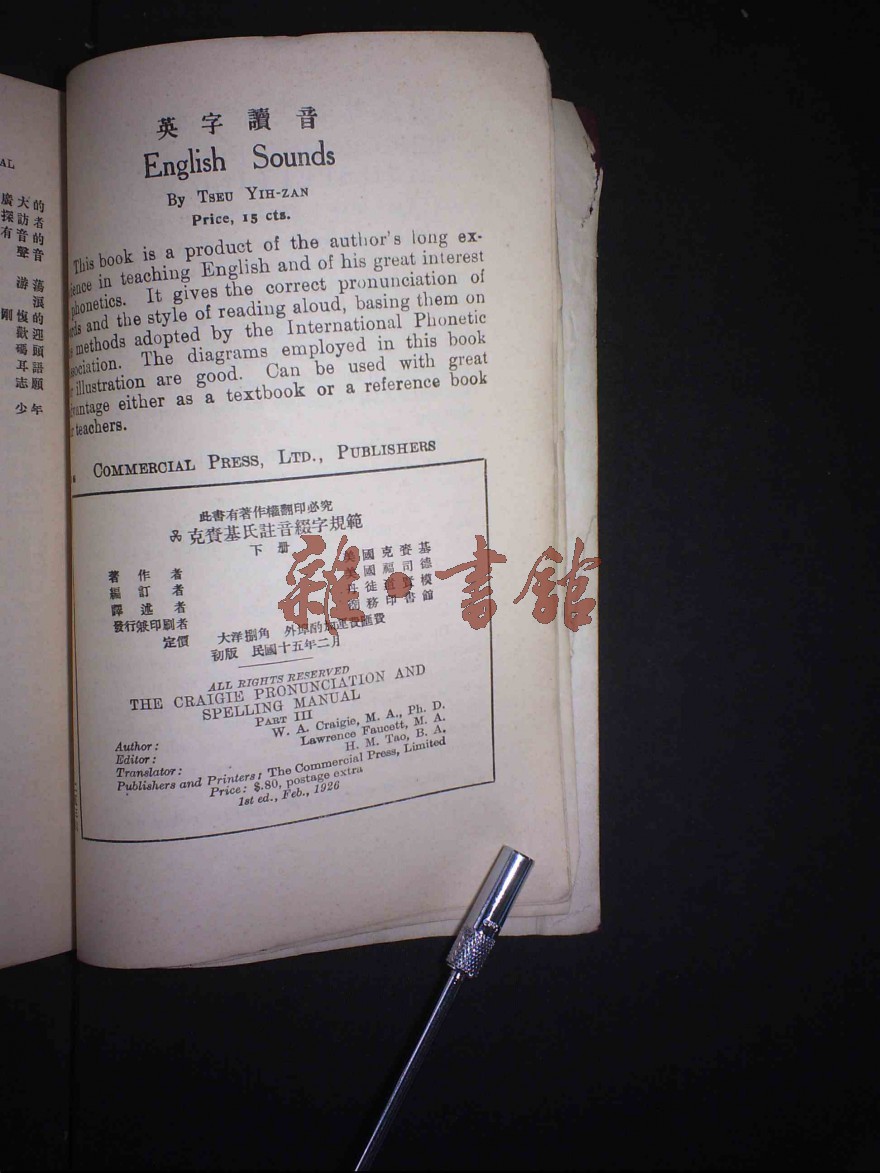 AL
廣大的
探訪者
有音的
聲音
游蕩
淚
剛愎的
歡迎
碼頭
耳語
志願
少年
英字讀音
English Sounds
By Tseu Yih-zan
Price, 15 cts.
This book is a product of the author's long ex-
ience in teaching English and of his great interest
phonetics. It gives the correct pronunciation of
rds and the style of reading aloud, basing them on
methods adopted by the International Phonetic
sociation. The diagrams employed in this book
r illustration are good. Can be used with great
vantage either as a textbook or a reference book
r teachers.
Commercial Press, Ltd., Publishers
此書有著作權翻印必究
克賚基氏註音綴字規範
下册
著作者 英國克賚基
編訂者 美國福司德
譯述者 丹徒
發行兼印刷者 商務印書館
定價 大洋捌角 外埠酌加運費匯費
初版 民國十五年二月
ALL RIGHTS RESERVED
THE CRAIGIE PRONUNCIATION AND
SPELLING MANUAL
Part III
Author: W. A. Craigie, M. A., Ph. D.
Editor: Lawrence Faucett, M. A.
Translator: H. M. Tao, B. A.
Publishers and Printers: The Commercial Press, Limited
Price: $.80, postage extra
1st ed., Feb., 1926
雜·書館